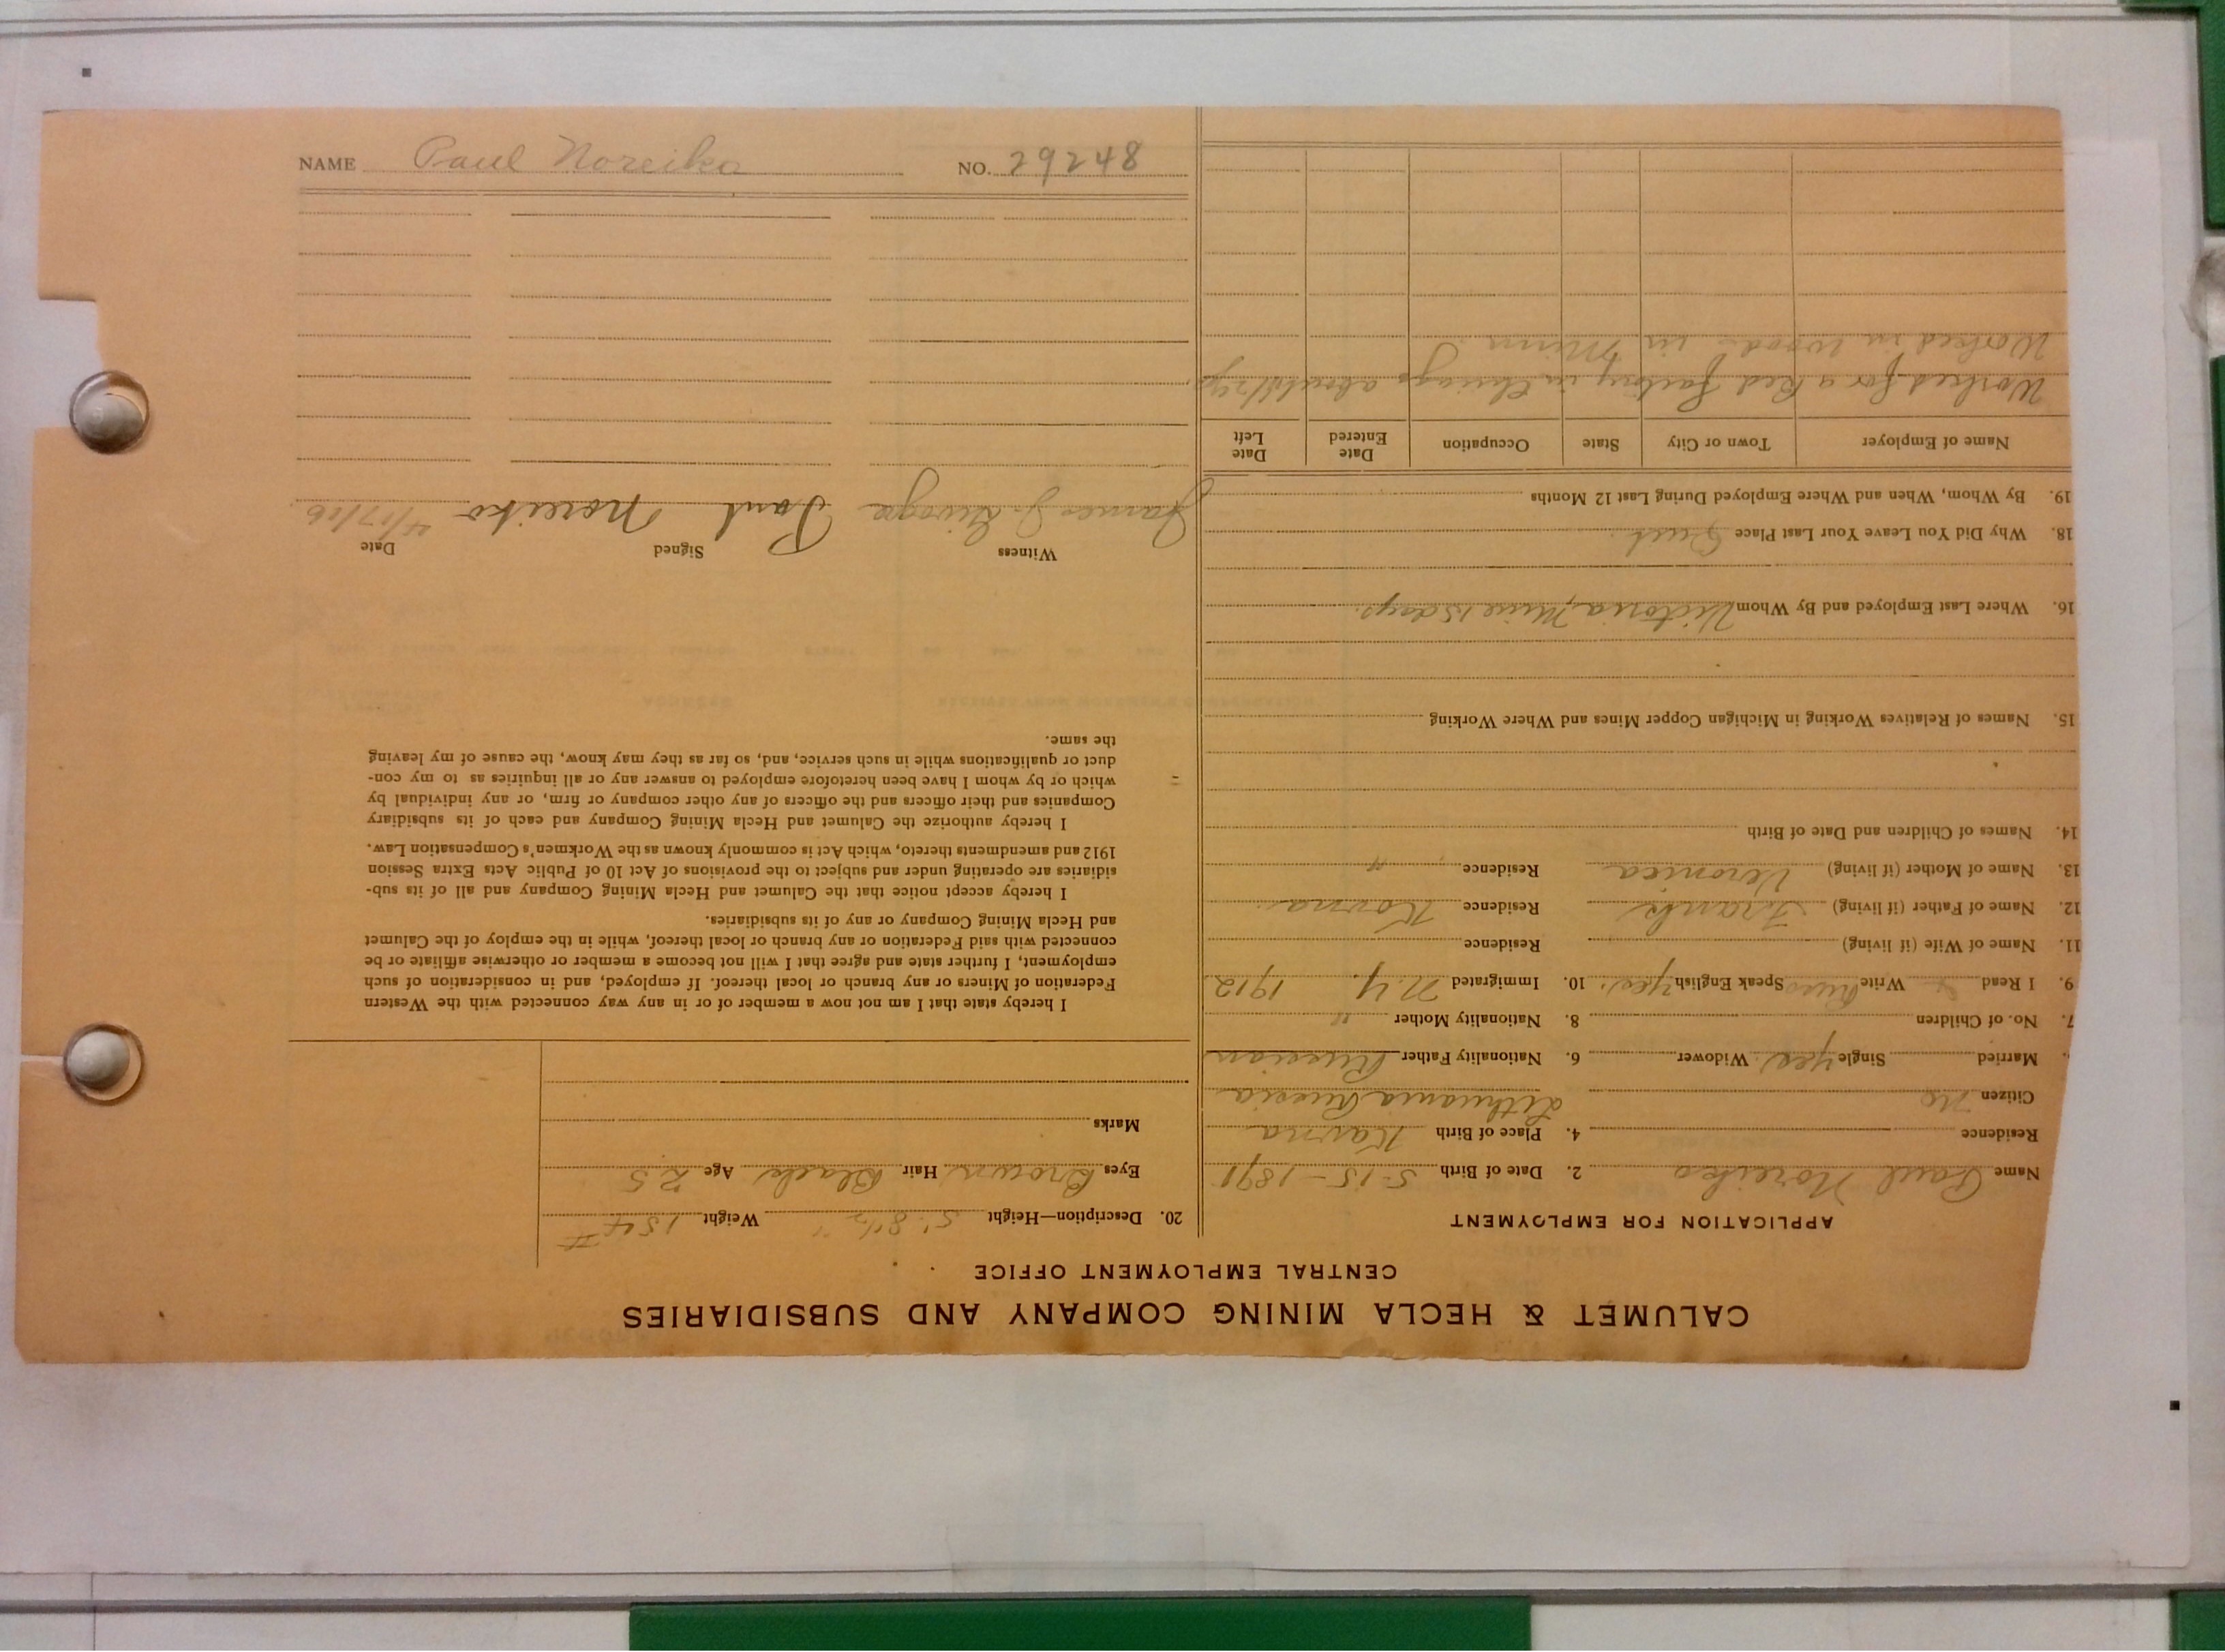 CALUMET & HECLA MINING COMPANY AND SUBSIDIARIES
CENTRAL EMPLOYMENT OFFICE
APPLICATION FOR EMPLOYMENT
Name Paul Noreiko 2. Date of Birth 5-15-1891
Residence 4. Place of Birth Kavna
Citizen No Lithuania Russia
Married Single Yes Widower 6. Nationality Father Russian
7. No. of Children 8. Nationality Mother "
9. I Read Write Speak English Yes. 10. Immigrated N.Y. 1912
11. Name of Wife (if living) Residence
12. Name of Father (if living) Frank Residence Kovna.
13. Name of Mother (if living) Veronica Residence "
14. Names of Children and Date of Birth
15. Names of Relatives Working in Michigan Copper Mines and Where Working
16. Where Last Employed and By Whom Victoria Mine 15 days.
18. Why Did You Leave Your Last Place Quit.
19. By Whom, When and Where Employed During Last 12 Months
Name of Employer Town or City State Occupation Date Entered Date Left
Worked for a Bed factory in Chicago about
Worked in woods in Minn.
20. Description—Height 5' 8½" Weight 154 #
Eyes Brown Hair Black Age 25
Marks
I hereby state that I am not now a member of or in any way connected with the Western
Federation of Miners or any branch or local thereof. If employed, and in consideration of such
employment, I further state and agree that I will not become a member or otherwise affiliate or be
connected with said Federation or any branch or local thereof, while in the employ of the Calumet
and Hecla Mining Company or any of its subsidiaries.
I hereby accept notice that the Calumet and Hecla Mining Company and all of its sub-
sidiaries are operating under and subject to the provisions of Act 10 of Public Acts Extra Session
1912 and amendments thereto, which Act is commonly known as the Workmen's Compensation Law.
I hereby authorize the Calumet and Hecla Mining Company and each of its subsidiary
Companies and their officers and the officers of any other company or firm, or any individual by
which or by whom I have been heretofore employed to answer any or all inquiries as to my con-
duct or qualifications while in such service, and, so far as they may know, the cause of my leaving
the same.
Witness Signed Date
James J. Paul Noreiko
NAME Paul Noreika NO. 29248